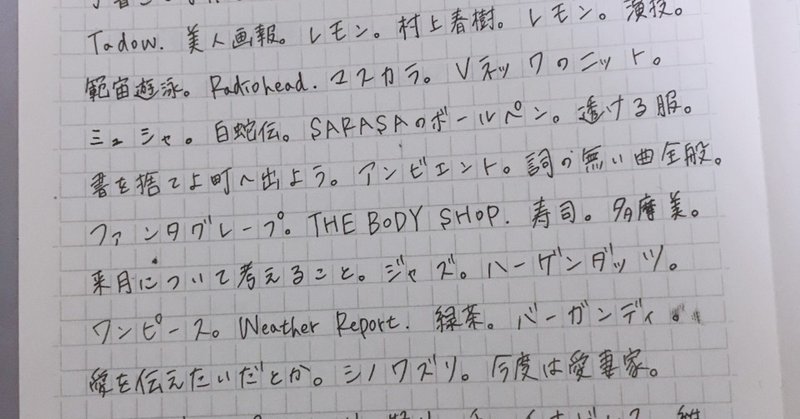 Tadow. 美人画報。レモン。村上春樹。レモン。演技。
範宙遊泳。Radiohead. マスカラ。Vネックのニット。
ミュシャ。白蛇伝。SARASAのボールペン。透ける服。
書を捨てよ町へ出よう。アンビエント。詞の無い曲全般。
ファンタグレープ。THE BODY SHOP. 寿司。多摩美。
来月について考えること。ジャズ。ハーゲンダッツ。
ワンピース。Weather Report. 緑茶。バーガンディ。
愛を伝えたいだとか。シノワズリ。今度は愛妻家。